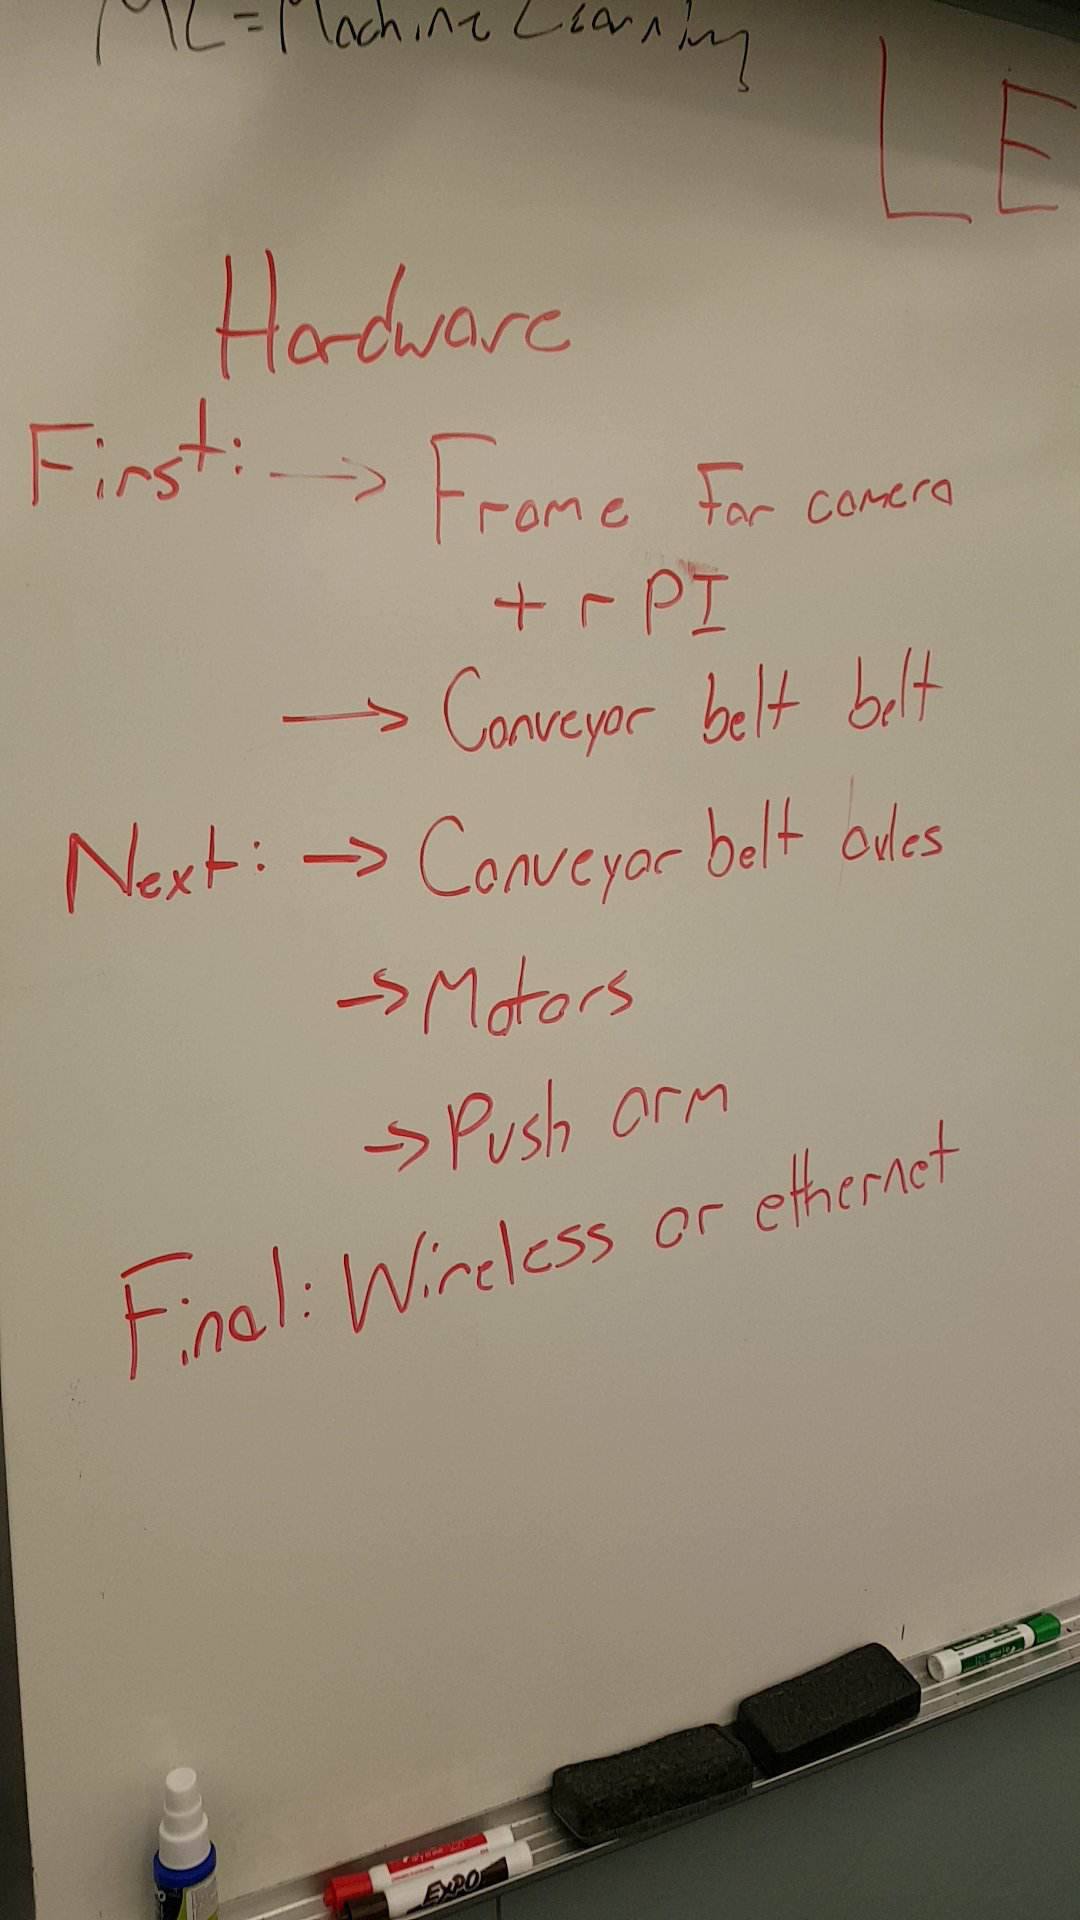 ML = Machine Learning
LE
Hardware
First: → Frame For camera
+ r PI
→ Conveyor belt belt
Next: → Conveyor belt axles
→ Motors
→ Push arm
Final: Wireless or ethernet
EXPO